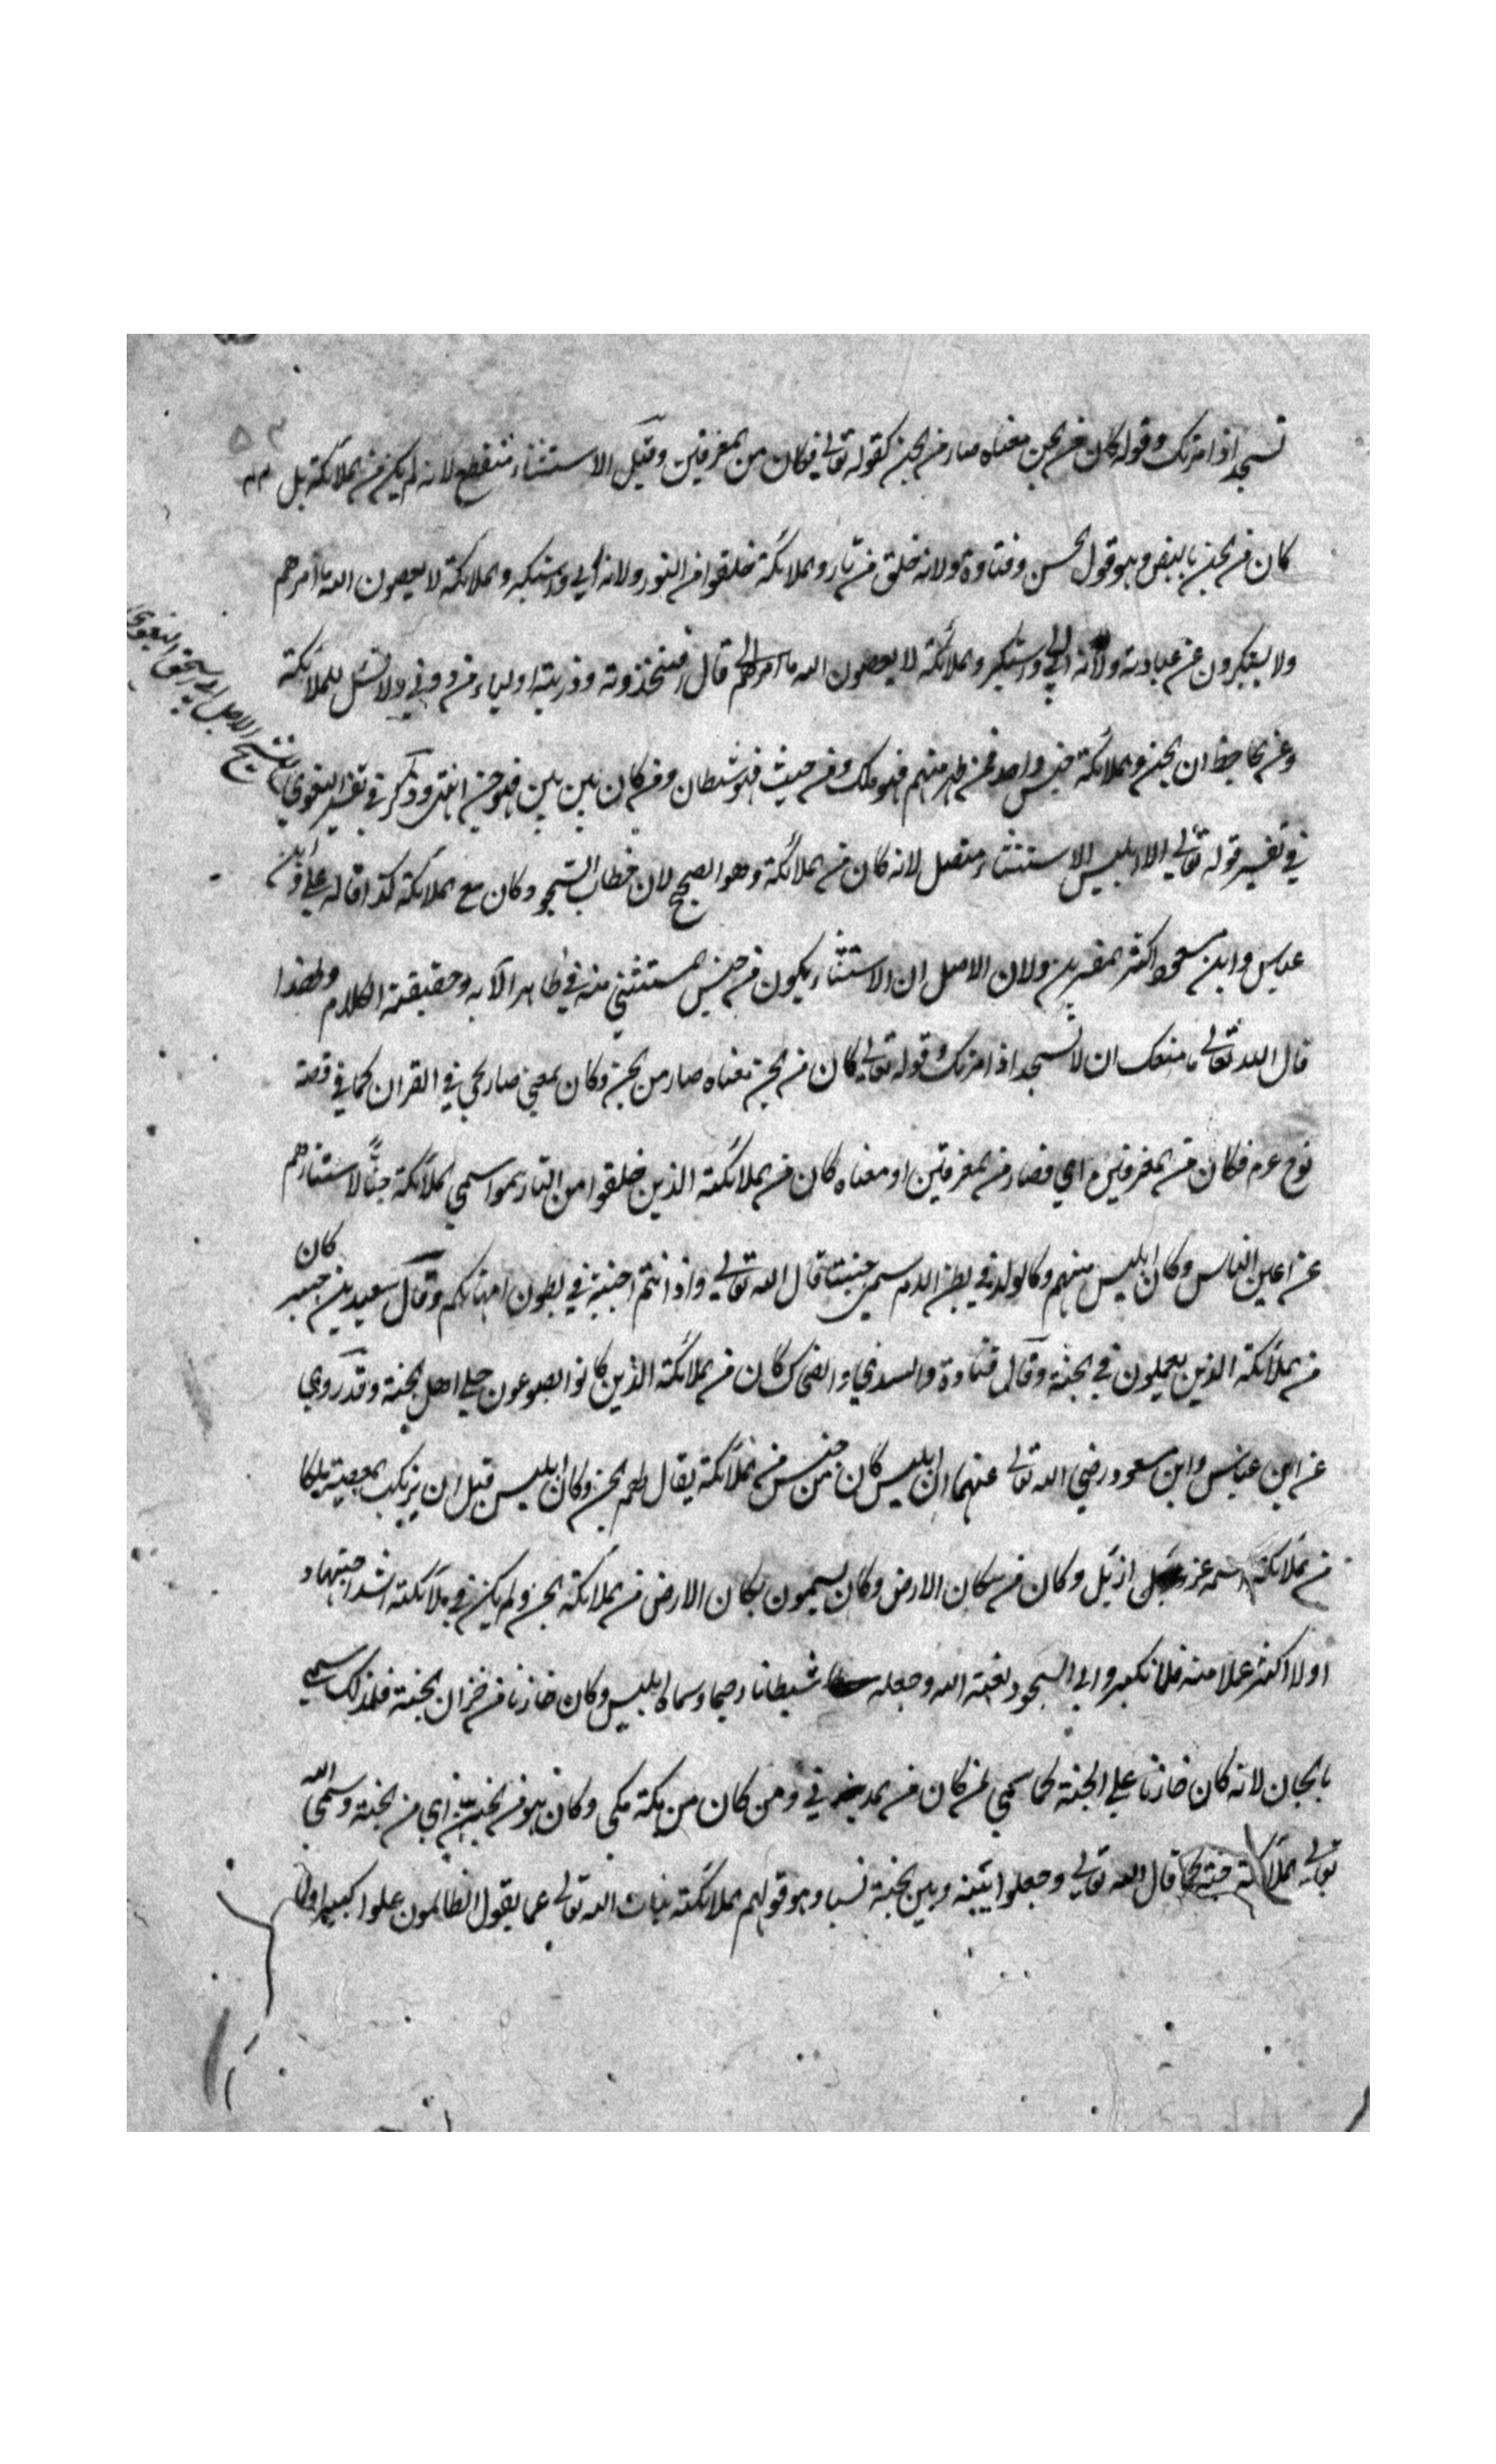 تسجد اذ امرتك وقوله كان من الجن معناه صار من الجن كقوله تعالى فكان من المغرقين وقيل الاستثناء منقطع لانه لم يكن من الملائكة بل
كان من الجن بالنص وهو قول الحسن وقتادة ولانه خلق من نار والملائكة خلقوا من النور ولانه ابى واستكبر والملائكة لا يعصون الله ما امرهم
ولا يستكبرون عن عبادته ولانه ابى واستكبر والملائكة لا يعصون الله ما امرهم قال افتتخذونه وذريته اولياء من دوني ولا نسل للملائكة
وعن الجاحظ ان الجن والملائكة جنس واحد فمن طهر منهم فهو ملك ومن خبث فهو شيطان ومن كان بين بين فهو جن انتهى وذكر في تفسير البغوي
في تفسير قوله تعالى الا ابليس الاستثناء متصل لانه كان من الملائكة وهو الصحيح لان خطاب السجود كان مع الملائكة كذا قاله علي وابن
عباس وابن مسعود واكثر المفسرين ولان الاصل ان الاستثناء يكون من جنس المستثنى منه في ظاهر الآية وحقيقة الكلام ولهذا
قال الله تعالى ما منعك ان لا تسجد اذ امرتك وقوله تعالى كان من الجن معناه صار من الجن وكان بمعنى صار يجي في القران كما في قصة
نوح عم فكان من المغرقين اي فصار من المغرقين او معناه كان من الملائكة الذين خلقوا من النار سموا سمي الملائكة جنًّا لاستتارهم
عن اعين الناس وكان ابليس منهم وكالولد في بطن الام سمي جنينا قال الله تعالى واذ انتم اجنة في بطون امهاتكم وقال سعيد بن جبير كان
من الملائكة الذين يعملون في الجنة وقال قتادة والسدي والضحاك كان من الملائكة الذين كانوا يصوغون حلي اهل الجنة وقد روي
عن ابن عباس وابن مسعود رضي الله تعالى عنهما ان ابليس كان من جنس من الملائكة يقال لهم الجن وكان ابليس قبل ان يرتكب المعصية ملكا
من الملائكة اسمه عزازيل وكان من سكان الارض وكان يسمون سكان الارض من الملائكة الجن ولم يكن في الملائكة اشد اجتهادا
ولا اكثر عملا منه فلما تكبر وابى السجود لعنه الله وجعله شيطانا رجيما وسماه ابليس وكان خازنا من خزان الجنة فلذلك سمي
بالجان لانه كان خازنا على الجنة كما سمي لمن كان من المدينة مدني ومن كان من مكة مكي وكان هو من الجن اي من الجنة وسمى الله
تعالى الملائكة جنة كما قال الله تعالى وجعلوا بينه وبين الجنة نسبا وهو قولهم الملائكة بنات الله تعالى عما يقول الظالمون علوا كبيرا